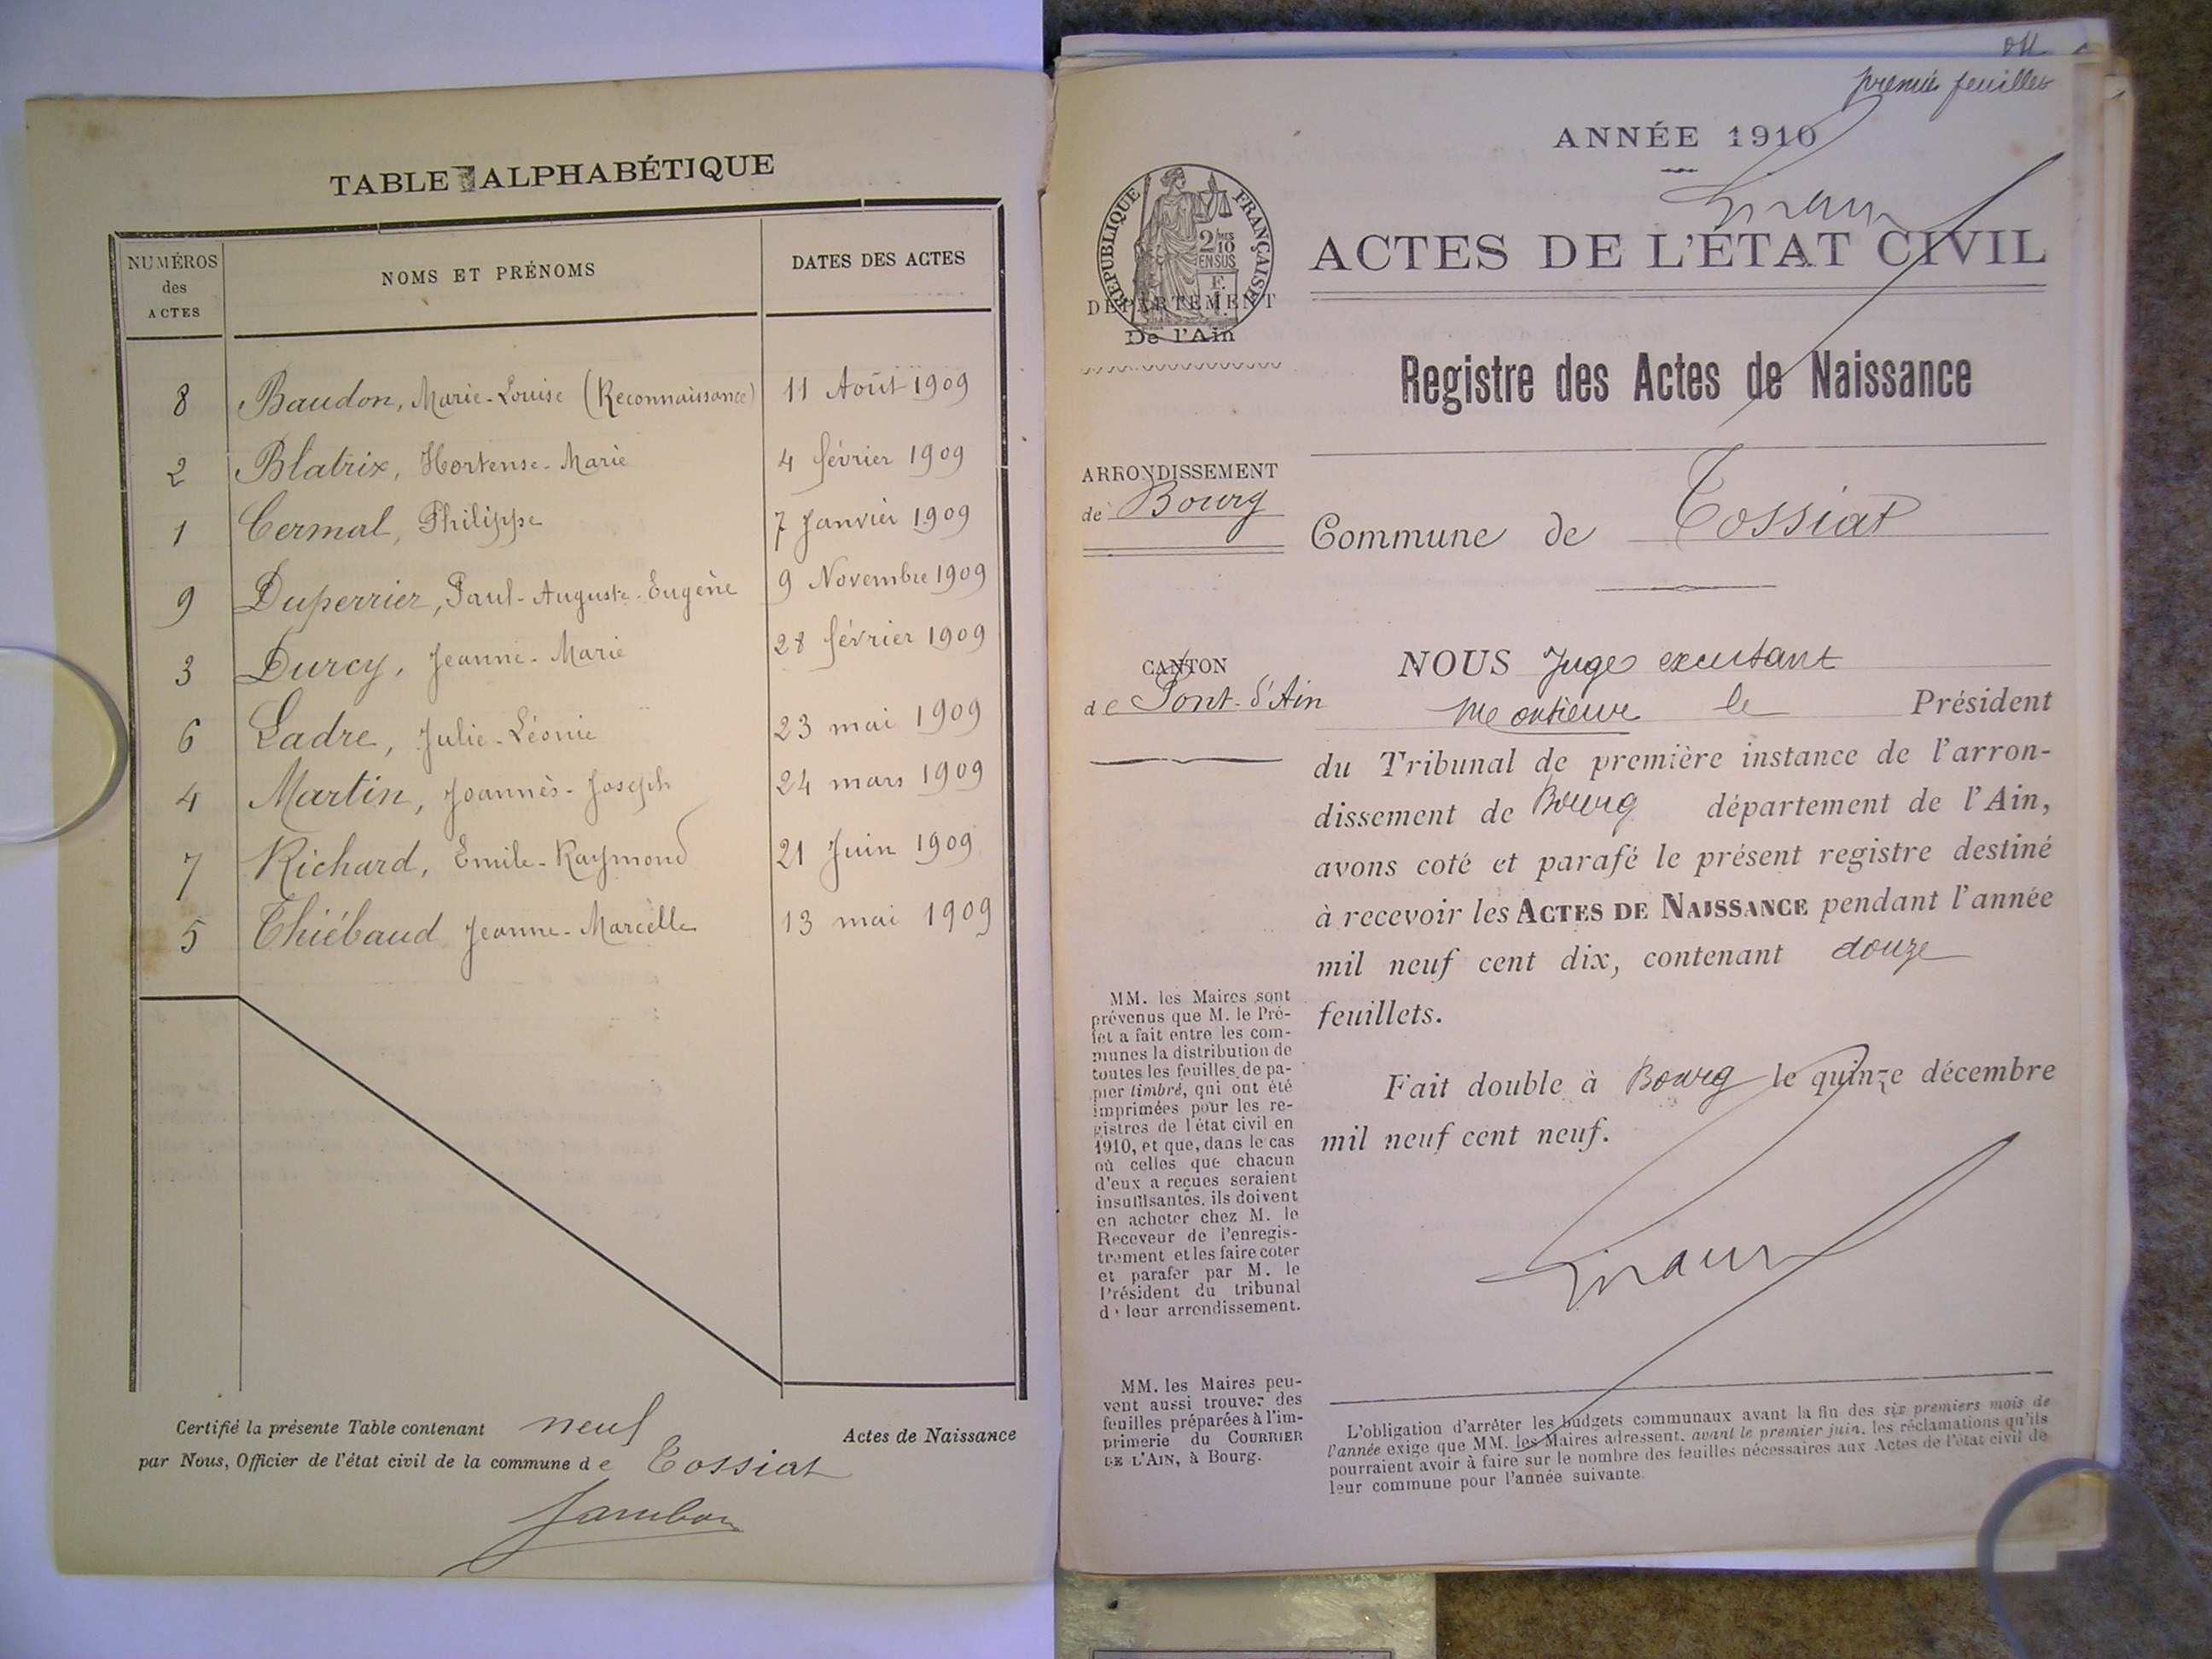 TABLE ALPHABÉTIQUE
NUMÉROS des ACTES | NOMS ET PRÉNOMS | DATES DES ACTES
8 Baudon, Marie-Louise (Reconnaissance) 11 Août 1909
2 Blatrix, Hortense-Marie 4 février 1909
1 Cermal, Philippe 7 Janvier 1909
9 Duperrier, Paul-Auguste-Eugène 9 Novembre 1909
3 Durcy, Jeanne-Marie 28 février 1909
6 Ladre, Julie-Léonie 23 mai 1909
4 Martin, Joannès-Joseph 24 mars 1909
7 Richard, Emile-Raymond 21 Juin 1909
5 Thiébaud Jeanne-Marcelle 13 mai 1909
Certifié la présente Table contenant neuf Actes de Naissance
par Nous, Officier de l'état civil de la commune de Tossiat
Jambon
premier feuillet
ANNÉE 1910
RÉPUBLIQUE FRANÇAISE
2/10 MES
EN SUS
DÉPARTEMENT
De l'Ain
ACTES DE L'ÉTAT CIVIL
Registre des Actes de Naissance
ARRONDISSEMENT
de Bourg
Commune de Tossiat
CANTON
de Pont-d'Ain
NOUS Juge excusant
Monsieur le Président
du Tribunal de première instance de l'arron-
dissement de Bourg département de l'Ain,
avons coté et parafé le présent registre destiné
à recevoir les ACTES DE NAISSANCE pendant l'année
mil neuf cent dix, contenant douze
feuillets.
Fait double à Bourg le quinze décembre
mil neuf cent neuf.
MM. les Maires sont
prévenus que M. le Pré-
fet a fait entre les com-
munes la distribution de
toutes les feuilles de pa-
pier timbré, qui ont été
imprimées pour les re-
gistres de l'état civil en
1910, et que, dans le cas
où celles que chacun
d'eux a reçues seraient
insuffisantes, ils doivent
en acheter chez M. le
Receveur de l'enregis-
trement et les faire coter
et parafer par M. le
Président du tribunal
de leur arrondissement.
MM. les Maires peu-
vent aussi trouver des
feuilles préparées à l'im-
primerie du COURRIER
DE L'AIN, à Bourg.
L'obligation d'arrêter les budgets communaux avant la fin des six premiers mois de
l'année exige que MM. les Maires adressent, avant le premier juin, les réclamations qu'ils
pourraient avoir à faire sur le nombre des feuilles nécessaires aux Actes de l'état civil de
leur commune pour l'année suivante.